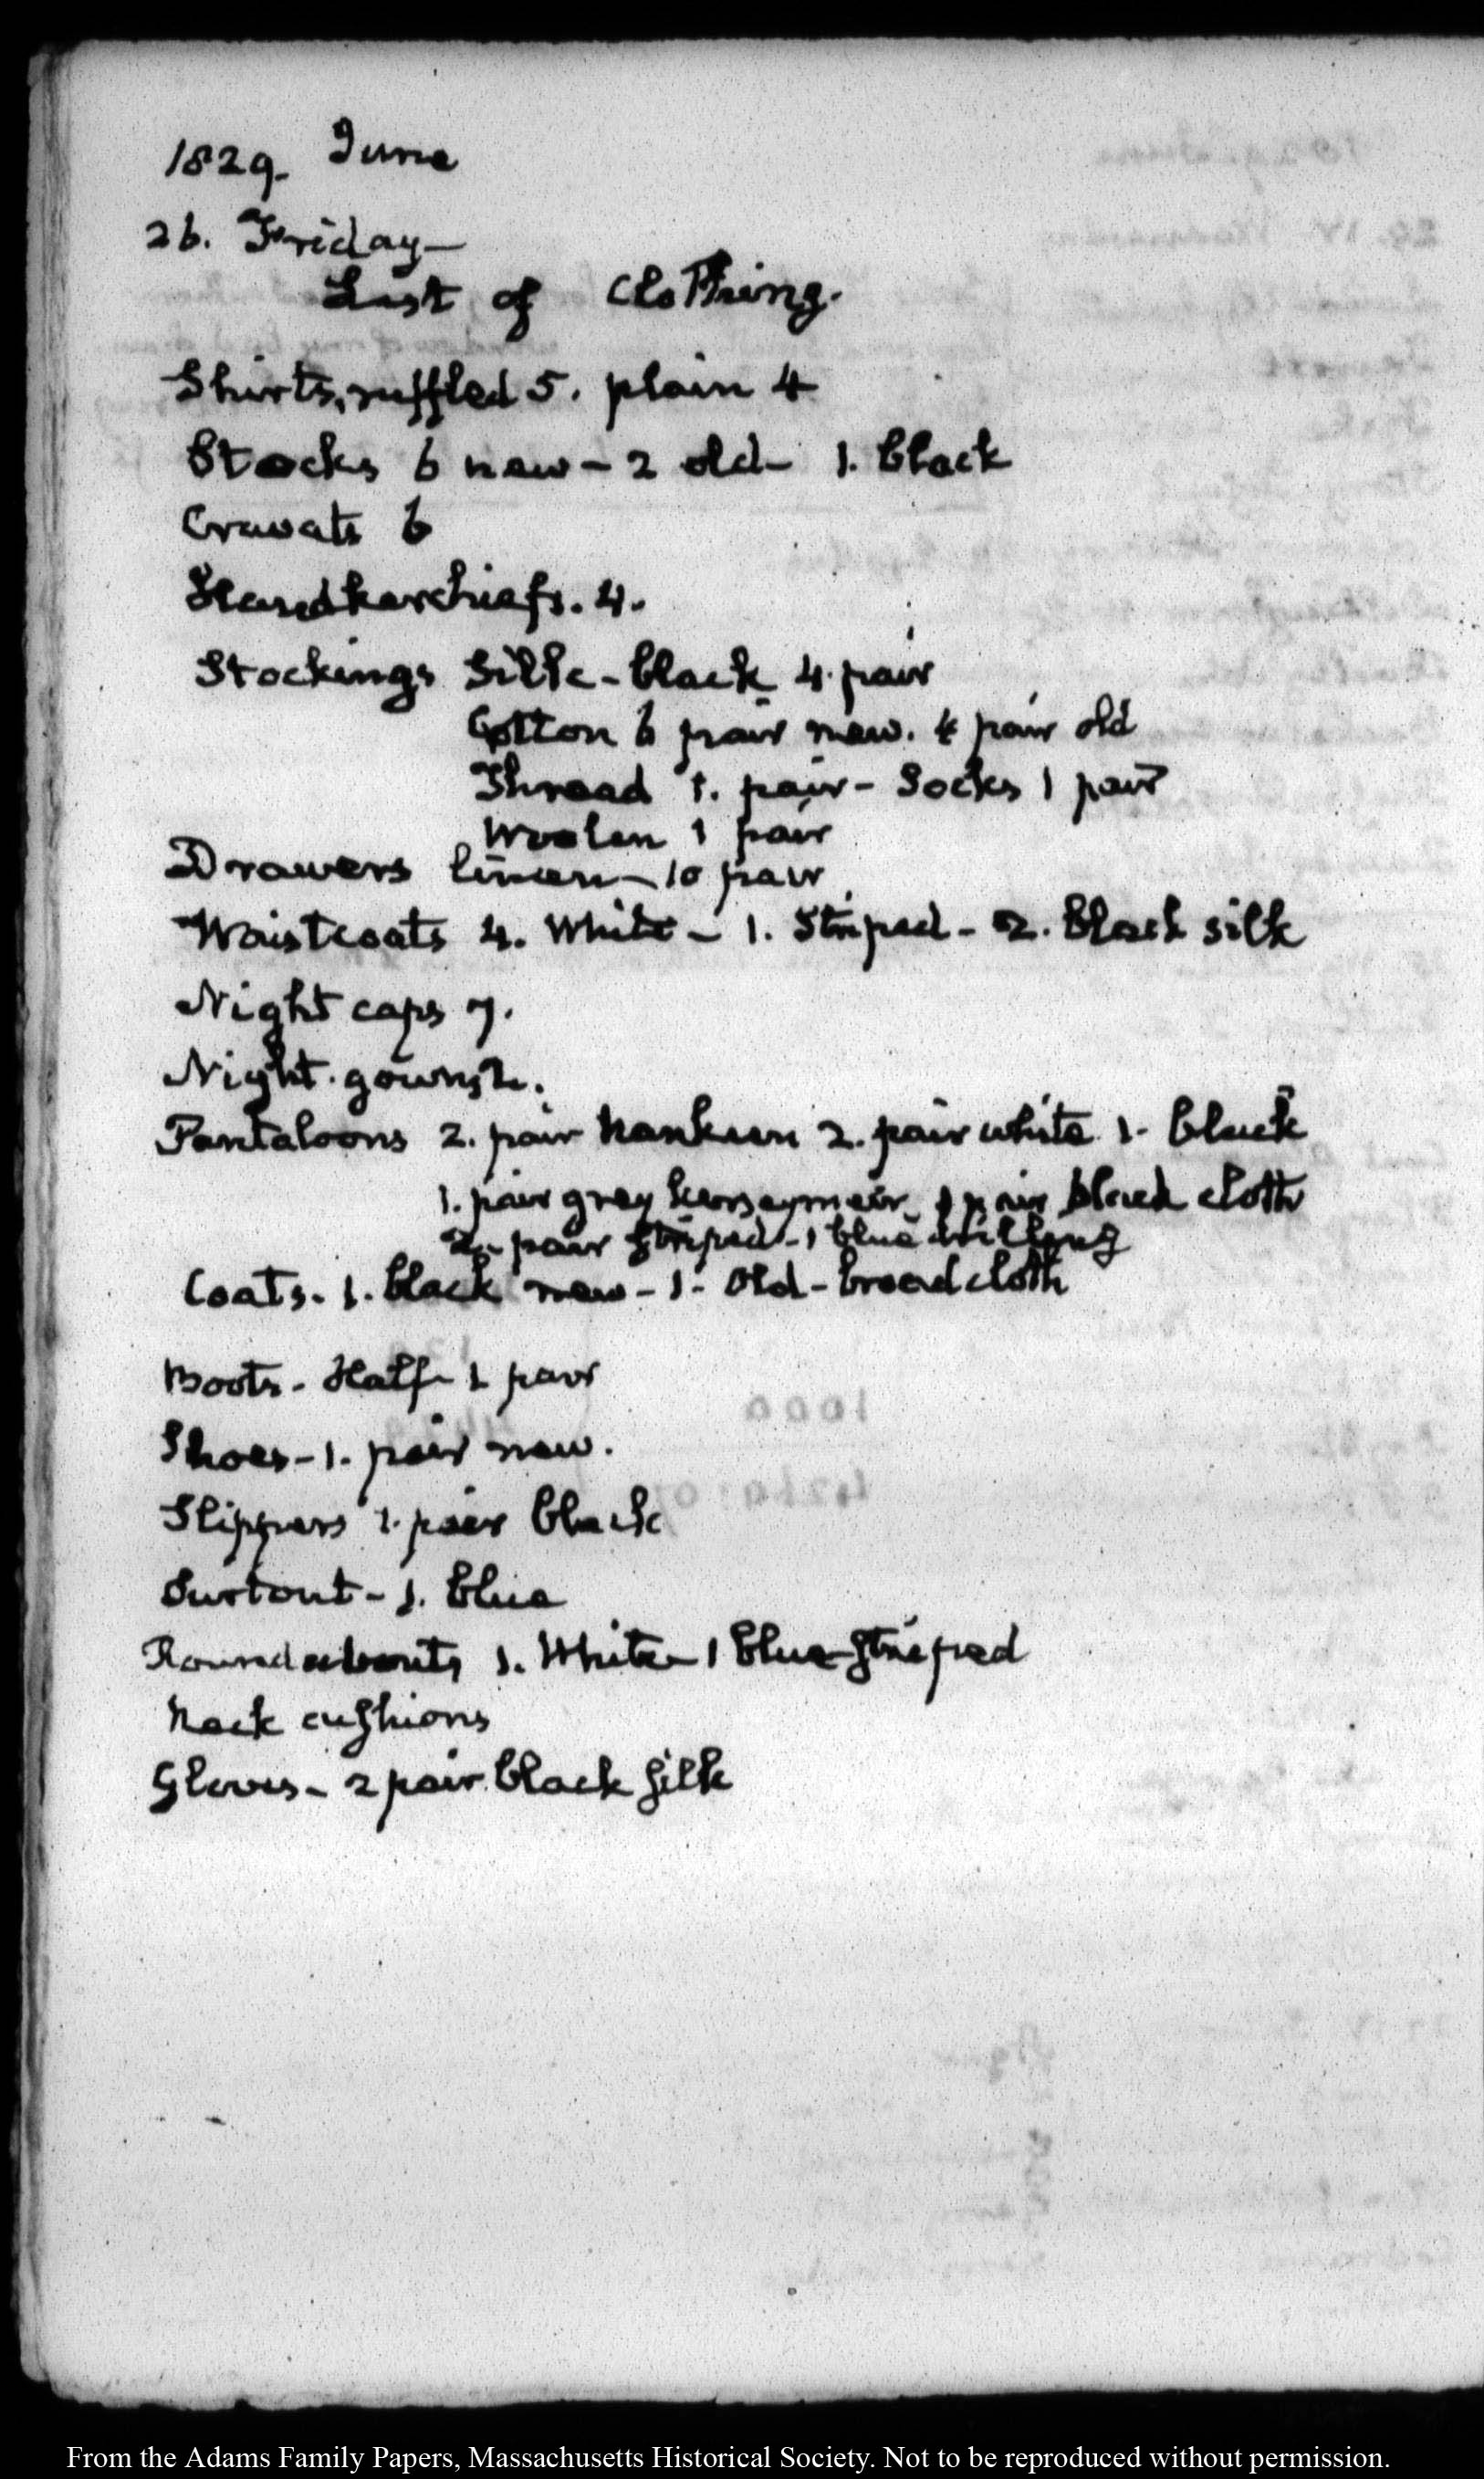 1829. June
26. Friday—
List of Clothing.
Shirts, ruffled 5. plain 4
Stocks 6 new – 2 old – 1. black
Cravats 6
Handkerchiefs. 4.
Stockings Silk – black 4. pair
Cotton 6 pair new. 4 pair old
Thread 1. pair – Socks 1 pair
Woolen 1 pair
Drawers linen – 10 pair
Waistcoats 4. White – 1. Striped – 2. Black silk
Night caps 7.
Night. gowns 2.
Pantaloons 2. pair Nankeen 2. pair white 1. black
1. pair grey kerseymeir 1 pair black cloth
2. pair striped – 1 blue drilling
Coats. 1. black new – 1. Old – broad cloth
Boots. Half – 1 pair
Shoes – 1. pair new.
Slippers 1. pair black
Surtout – 1. blue
Roundabouts 1. White – 1 blue striped
Neck cushions
Gloves – 2 pair black silk
From the Adams Family Papers, Massachusetts Historical Society. Not to be reproduced without permission.